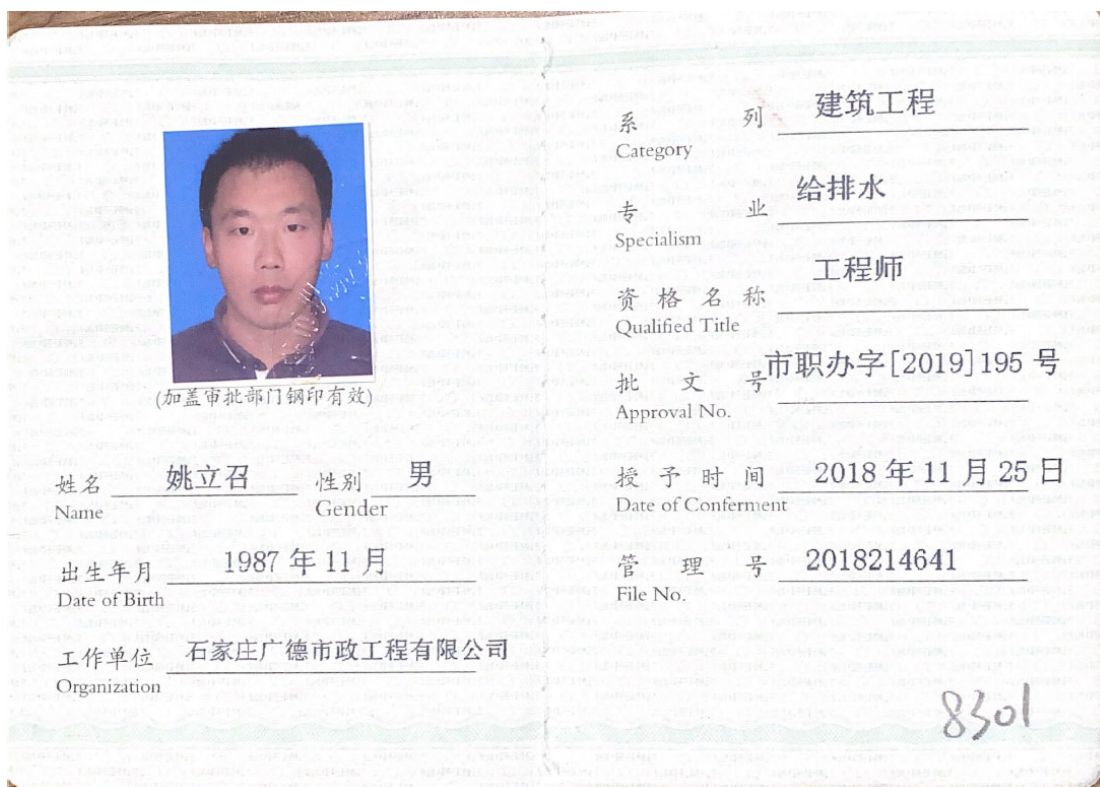 (加盖审批部门钢印有效)
姓名 姚立召 性别 男
Name Gender
出生年月 1987 年 11 月
Date of Birth
工作单位 石家庄广德市政工程有限公司
Organization
系 列 建筑工程
Category
专 业 给排水
Specialism
资 格 名 称 工程师
Qualified Title
批 文 号 市职办字[2019]195 号
Approval No.
授 予 时 间 2018 年 11 月 25 日
Date of Conferment
管 理 号 2018214641
File No.
8301